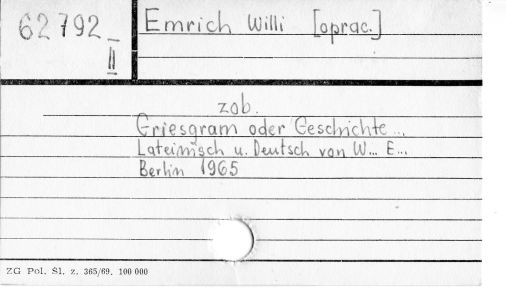 62792 Emrich Willi [oprac.]
II
zob.
Griesgram oder Geschichte...
Lateinisch u. Deutsch von W... E...
Berlin 1965
ZG Pol. Śl. z. 365/69. 100 000